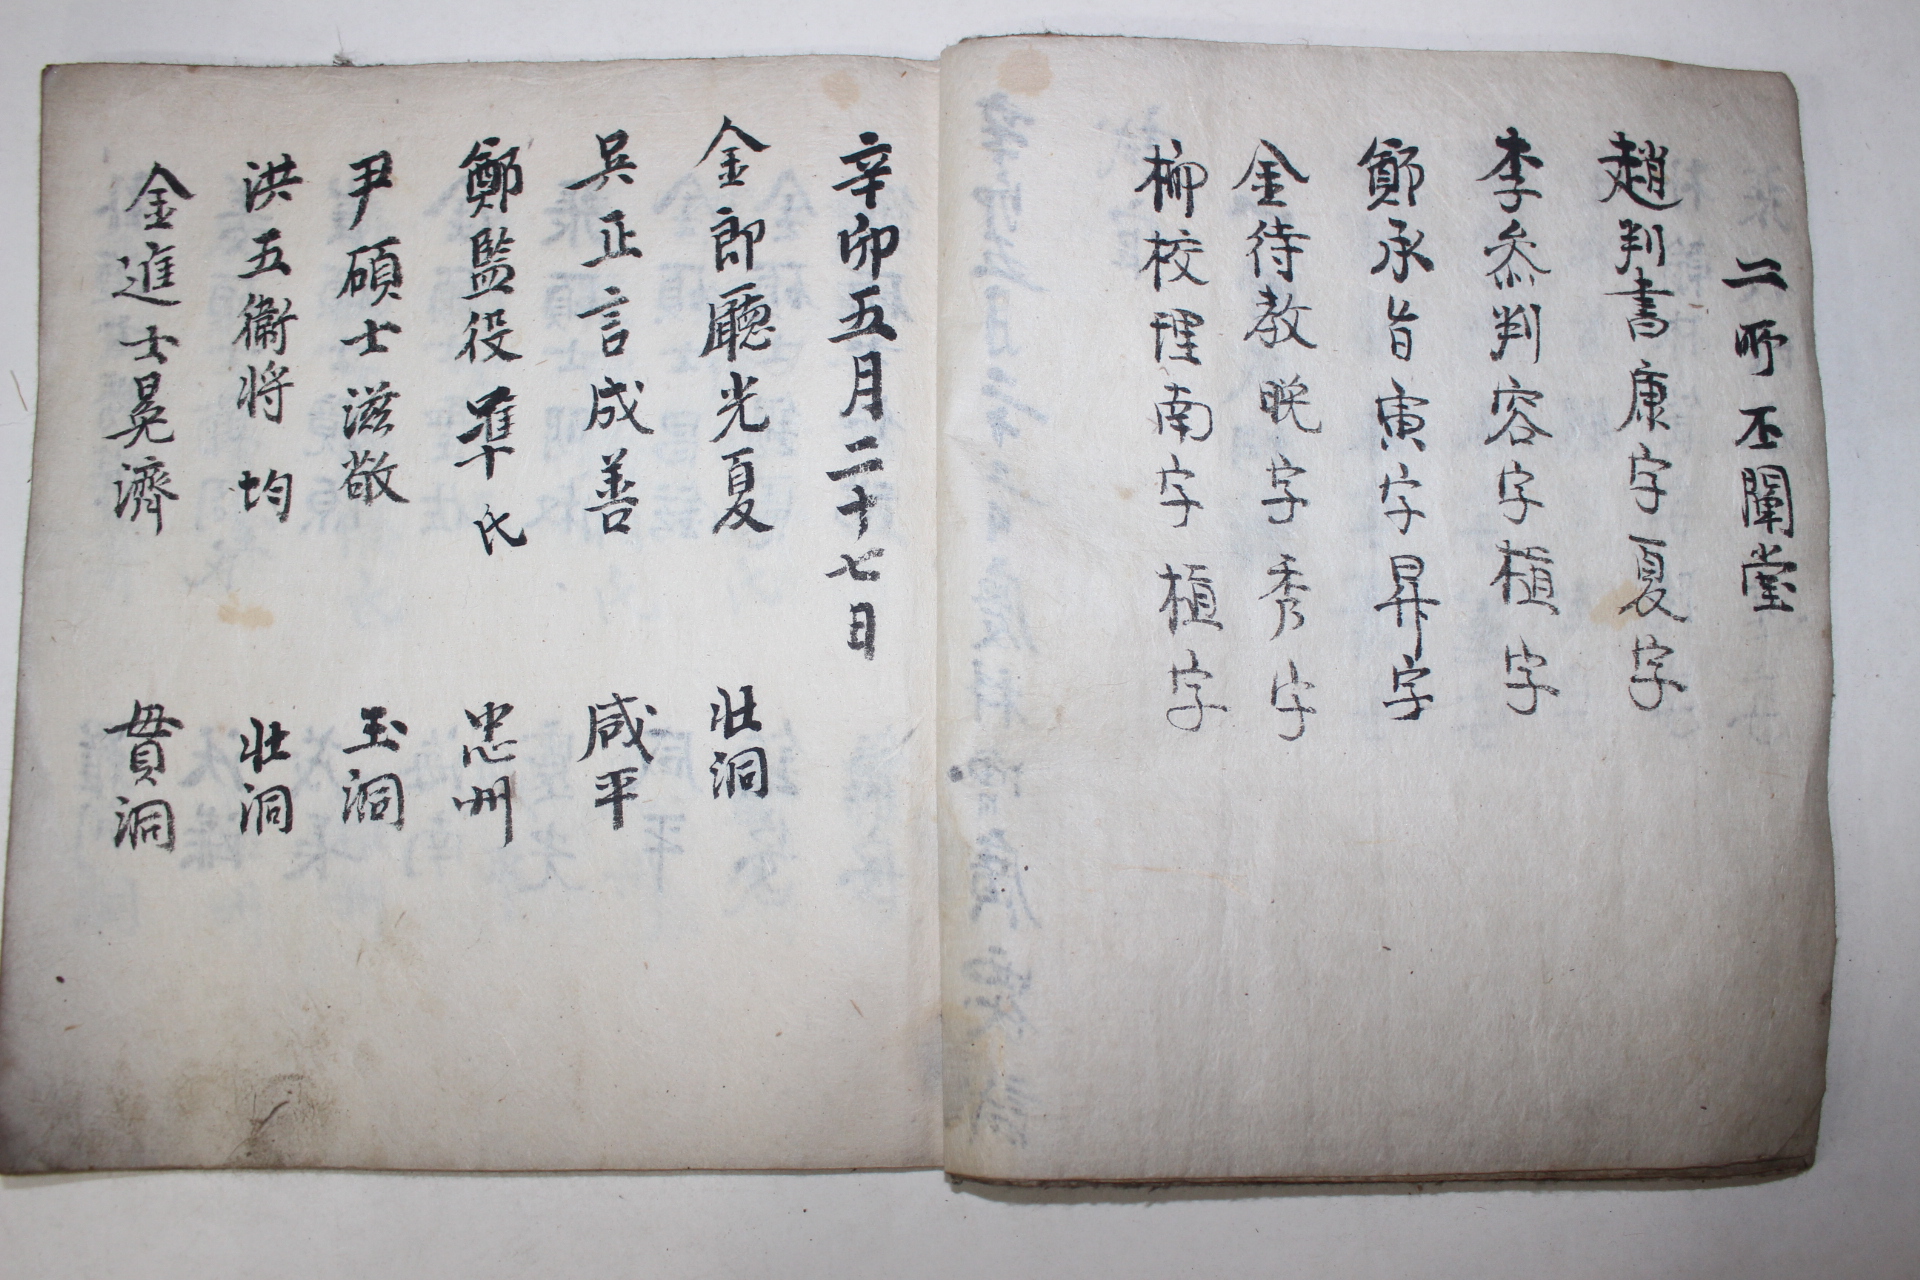 二所丕闡堂
趙判書康字夏字
李參判容字植字
鄭承旨寅字昇字
金待敎晩字秀字
柳校理南字植字
辛卯五月二十七日
金郎廳光夏 壯洞
吳正言成善 咸平
鄭監役準氏 忠州
尹碩士滋敬 玉洞
洪五衛將均 壯洞
金進士晃濟 貫洞